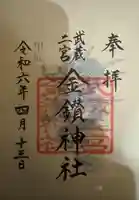 奉拝
武蔵
二宮
金鑚神社
令和六年四月十三日